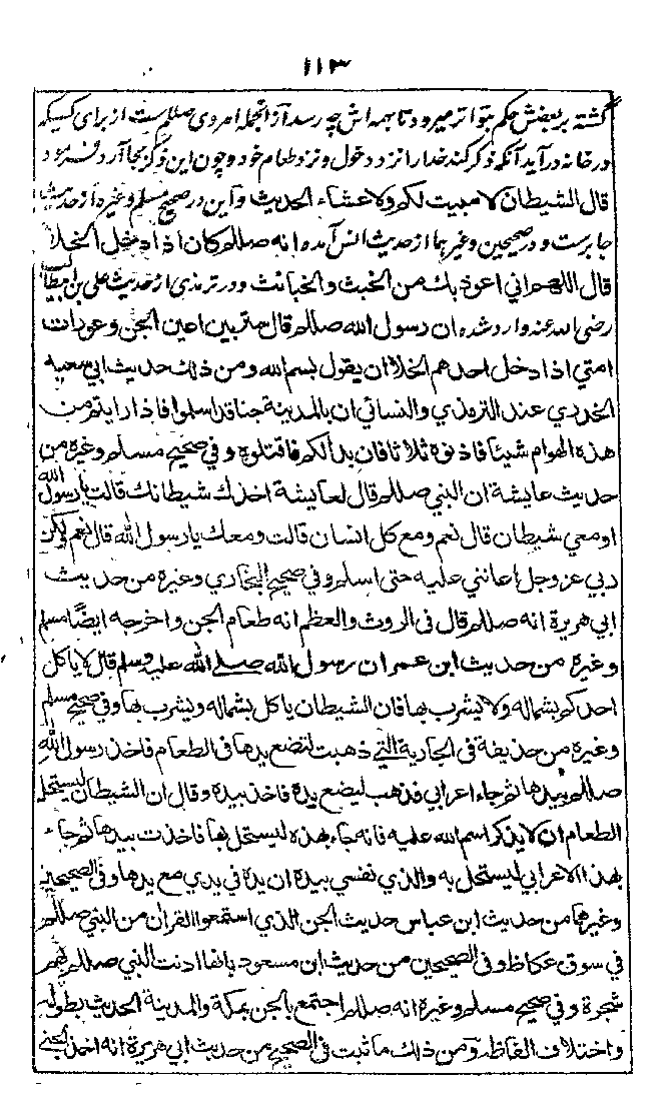 ۱۱۳
گشته بر بعضش حکم بتواتر میرود تا بهمه اش چه رسد از آنجمله امر وی صللم ست از برای کسیکه
در خانه در آید آنکه ذکر کند خدا را نزد دخول و نزد طعام خود و چون این ذکر بجا آرد
قال الشیطان لا مبیت لکم ولا عشاء الحدیث و این در صحیح مسلم و غیره از حدیث
جابرست و در صحیحین و غیر هما از حدیث انس آمده انه صللم کان اذا دخل الخلا
قال اللهم اني اعوذ بك من الخبث والخبائث و در ترمذی از حدیث علی بن ابیطالب
رضی الله عنه وارد شده ان رسول الله صللم قال ستر بین اعین الجن وعورات
امتي اذا دخل احدهم الخلا ان یقول بسم الله ومن ذلك حدیث ابي سعید
الخدري عند الترمذي والنسائي ان بالمدینة جنا قد اسلموا فاذا رایتم من
هذه الهوام شیئا فاذنوه ثلاثا فان بدا لکم فاقتلوه وفي صحیح مسلم وغیره من
حدیث عایشة ان النبي صللم قال لعایشة اخذك شیطانك قالت یا رسول الله
او معي شیطان قال نعم ومع کل انسان قالت ومعك یا رسول الله قال نعم ولکن
ربي عز وجل اعانني علیه حتی اسلم وفي صحیح البخاري وغیره من حدیث
ابي هریرة انه صللم قال فی الروث والعظم انه طعام الجن واخرجه ایضًا مسلم
وغیره من حدیث ابن عمر ان رسول الله صلى الله علیه وسلم قال لا یاکل
احدکم بشماله ولا یشرب بها فان الشیطان یاکل بشماله ویشرب بها وفي صحیح مسلم
وغیره من حذیفة فی الجاریة التي ذهبت لتضع یدها فی الطعام فاخذ رسول الله
صللم بیدها ثم جاء اعرابي فذهب لیضع یده فاخذ بیده وقال ان الشیطان لیستحل
الطعام ان لا یذکر اسم الله علیه فانه جاء بهذه لیستحل بها فاخذت بیدها ثم جاء
بهذا الاعرابي لیستحل به والذي نفسي بیده ان یده في یدي مع یدها وفی الصحیحین
وغیرهما من حدیث ابن عباس حدیث الجن الذي استمعوا القران من النبي صللم
في سوق عکاظ وفی الصحیحین من حدیث ابن مسعود بانها اذنت النبي صللم بهم
شجرة وفي صحیح مسلم وغیره انه صللم اجتمع بالجن بمکة والمدینة الحدیث بطوله
واختلاف الفاظه ومن ذلك ما ثبت فی الصحیح من حدیث ابي هریرة انه اخذ الجني